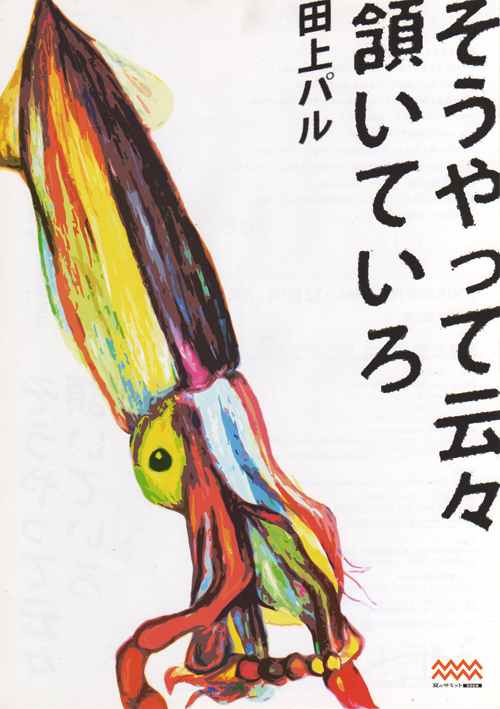 そうやって云々
頷いていろ
田上パル
夏のサミット 2008